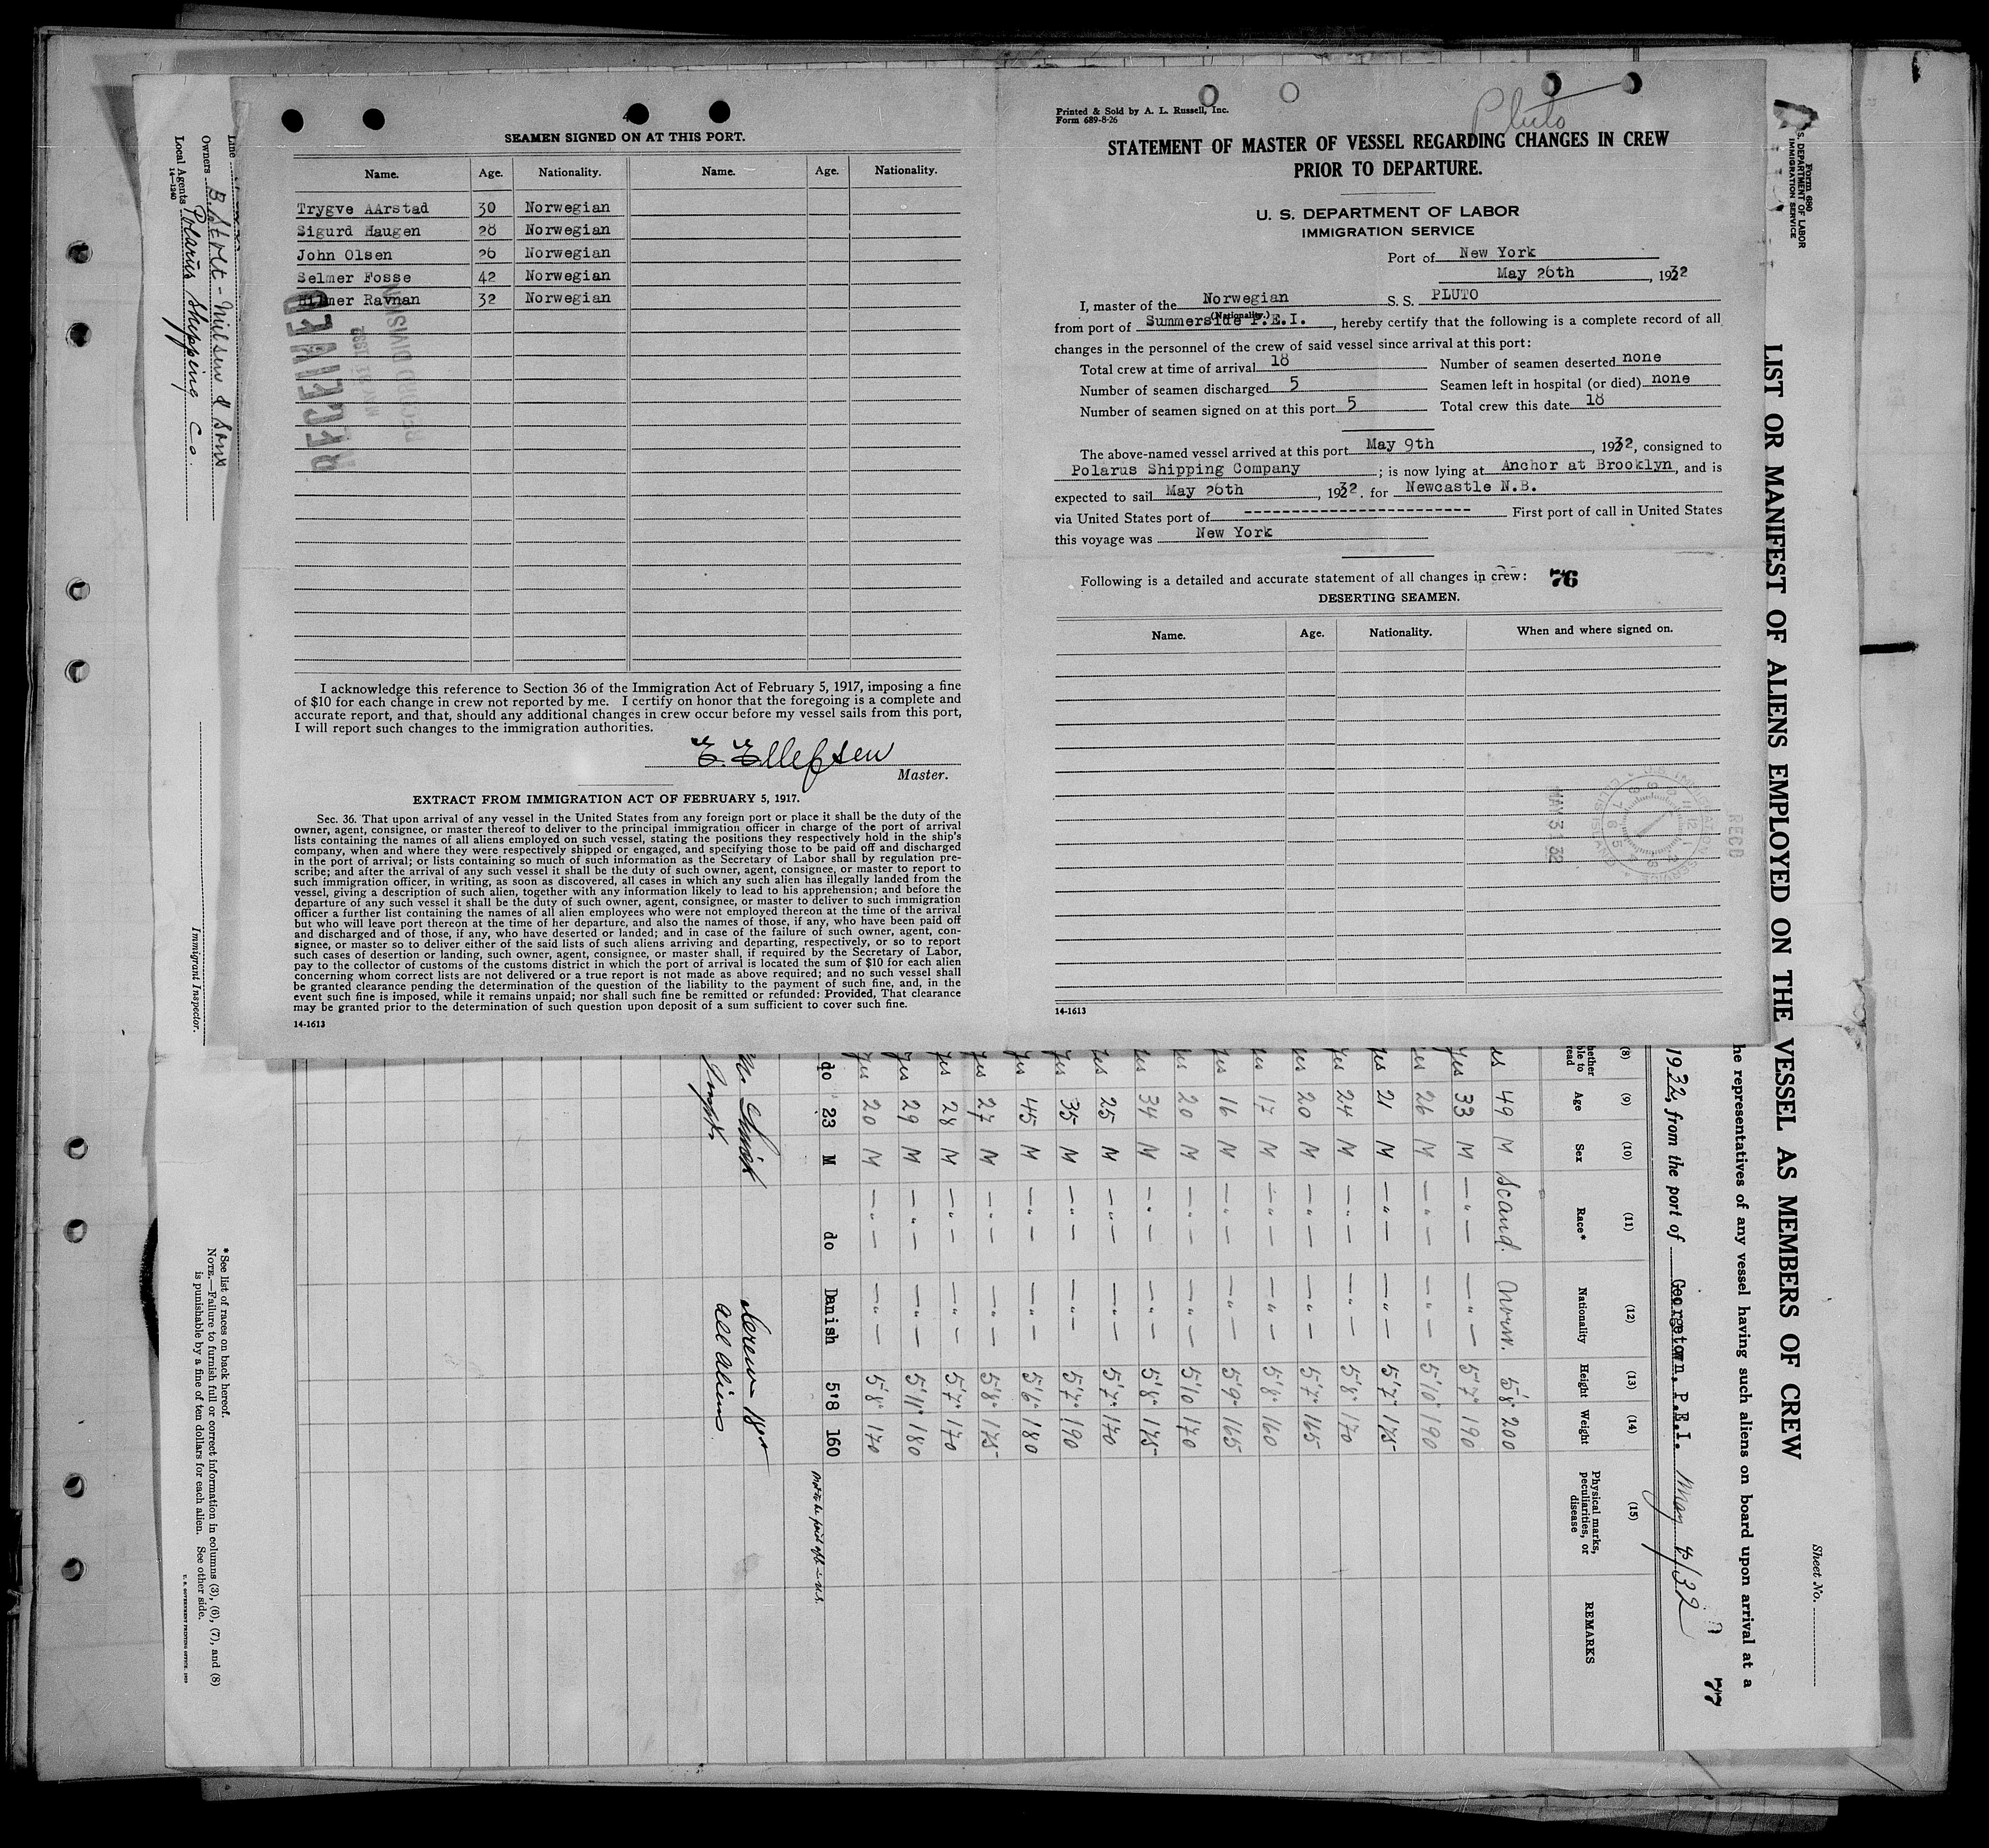 SEAMEN SIGNED ON AT THIS PORT.
Name. Age. Nationality. Name. Age. Nationality.
Trygve AArstad 30 Norwegian
Sigurd Haugen 28 Norwegian
John Olsen 26 Norwegian
Selmer Fosse 42 Norwegian
Hilmer Ravnan 32 Norwegian
RECEIVED
RECORD DIVISION
I acknowledge this reference to Section 36 of the Immigration Act of February 5, 1917, imposing a fine
of $10 for each change in crew not reported by me. I certify on honor that the foregoing is a complete and
accurate report, and that, should any additional changes in crew occur before my vessel sails from this port,
I will report such changes to the immigration authorities.
E. Ellefsen
Master.
EXTRACT FROM IMMIGRATION ACT OF FEBRUARY 5, 1917.
Sec. 36. That upon arrival of any vessel in the United States from any foreign port or place it shall be the duty of the
owner, agent, consignee, or master thereof to deliver to the principal immigration officer in charge of the port of arrival
lists containing the names of all aliens employed on such vessel, stating the positions they respectively hold in the ship's
company, when and where they were respectively shipped or engaged, and specifying those to be paid off and discharged
in the port of arrival; or lists containing so much of such information as the Secretary of Labor shall by regulation pre-
scribe; and after the arrival of any such vessel it shall be the duty of such owner, agent, consignee, or master to report to
such immigration officer, in writing, as soon as discovered, all cases in which any such alien has illegally landed from the
vessel, giving a description of such alien, together with any information likely to lead to his apprehension; and before the
departure of any such vessel it shall be the duty of such owner, agent, consignee, or master to deliver to such immigration
officer a further list containing the names of all alien employees who were not employed thereon at the time of the arrival
but who will leave port thereon at the time of her departure, and also the names of those, if any, who have been paid off
and discharged and of those, if any, who have deserted or landed; and in case of the failure of such owner, agent, con-
signee, or master so to deliver either of the said lists of such aliens arriving and departing, respectively, or so to report
such cases of desertion or landing, such owner, agent, consignee, or master shall, if required by the Secretary of Labor,
pay to the collector of customs of the customs district in which the port of arrival is located the sum of $10 for each alien
concerning whom correct lists are not delivered or a true report is not made as above required; and no such vessel shall
be granted clearance pending the determination of the question of the liability to the payment of such fine, and, in the
event such fine is imposed, while it remains unpaid; nor shall such fine be remitted or refunded: Provided, That clearance
may be granted prior to the determination of such question upon deposit of a sum sufficient to cover such fine.
14-1613
Printed & Sold by A. L. Russell, Inc.
Form 689-8-26
Pluto
STATEMENT OF MASTER OF VESSEL REGARDING CHANGES IN CREW
PRIOR TO DEPARTURE.
U. S. DEPARTMENT OF LABOR
IMMIGRATION SERVICE
Port of New York
May 26th, 1932
I, master of the Norwegian S. S. PLUTO
(Nationality.)
from port of Summerside P.E.I., hereby certify that the following is a complete record of all
changes in the personnel of the crew of said vessel since arrival at this port:
Total crew at time of arrival 18 Number of seamen deserted none
Number of seamen discharged 5 Seamen left in hospital (or died) none
Number of seamen signed on at this port 5 Total crew this date 18
The above-named vessel arrived at this port May 9th, 1932, consigned to
Polarus Shipping Company; is now lying at Anchor at Brooklyn, and is
expected to sail May 26th, 1932, for Newcastle N.B.
via United States port of ------------------------ First port of call in United States
this voyage was New York
Following is a detailed and accurate statement of all changes in crew: 76
DESERTING SEAMEN.
Name. Age. Nationality. When and where signed on.
MAY 3 32
RECD
14-1613
Form 680
U. S. DEPARTMENT OF LABOR
IMMIGRATION SERVICE
Sheet No.
LIST OR MANIFEST OF ALIENS EMPLOYED ON THE VESSEL AS MEMBERS OF CREW
he representatives of any vessel having such aliens on board upon arrival at a
77
1932, from the port of Georgetown, P.E.I. May 4/32
(8) (9) (10) (11) (12) (13) (14) (15)
Age Sex Race* Nationality Height Weight Physical marks, peculiarities, or disease REMARKS
49 M Scand. Norw. 5'8 200
yes 33 M —"— —"— 5'7" 190
yes 26 M —"— —"— 5'10" 190
yes 21 M —"— —"— 5'7" 175
yes 24 M —"— —"— 5'8" 170
yes 20 M —"— —"— 5'7" 165
yes 17 M —"— —"— 5'8" 160
yes 16 M —"— —"— 5'9" 165
yes 20 M —"— —"— 5'10 170
yes 34 M —"— —"— 5'8" 175
yes 25 M —"— —"— 5'7" 170
yes 35 M —"— —"— 5'7" 190
yes 45 M —"— —"— 5'6" 180
yes 27 M —"— —"— 5'8" 175
yes 28 M —"— —"— 5'7" 170
yes 29 M —"— —"— 5'11" 180
yes 20 M —"— —"— 5'8" 170
do 23 M do Danish 5'8 160
Crew 18
all aliens
Line
Owners B. Stolt-Nielsen & Sons
Local Agents Polarus Shipping Co.
14-1240
Immigrant Inspector.
* See list of races on back hereof.
NOTE.—Failure to furnish full or correct information in columns (3), (6), (7), and (8)
is punishable by a fine of ten dollars for each alien. See other side.